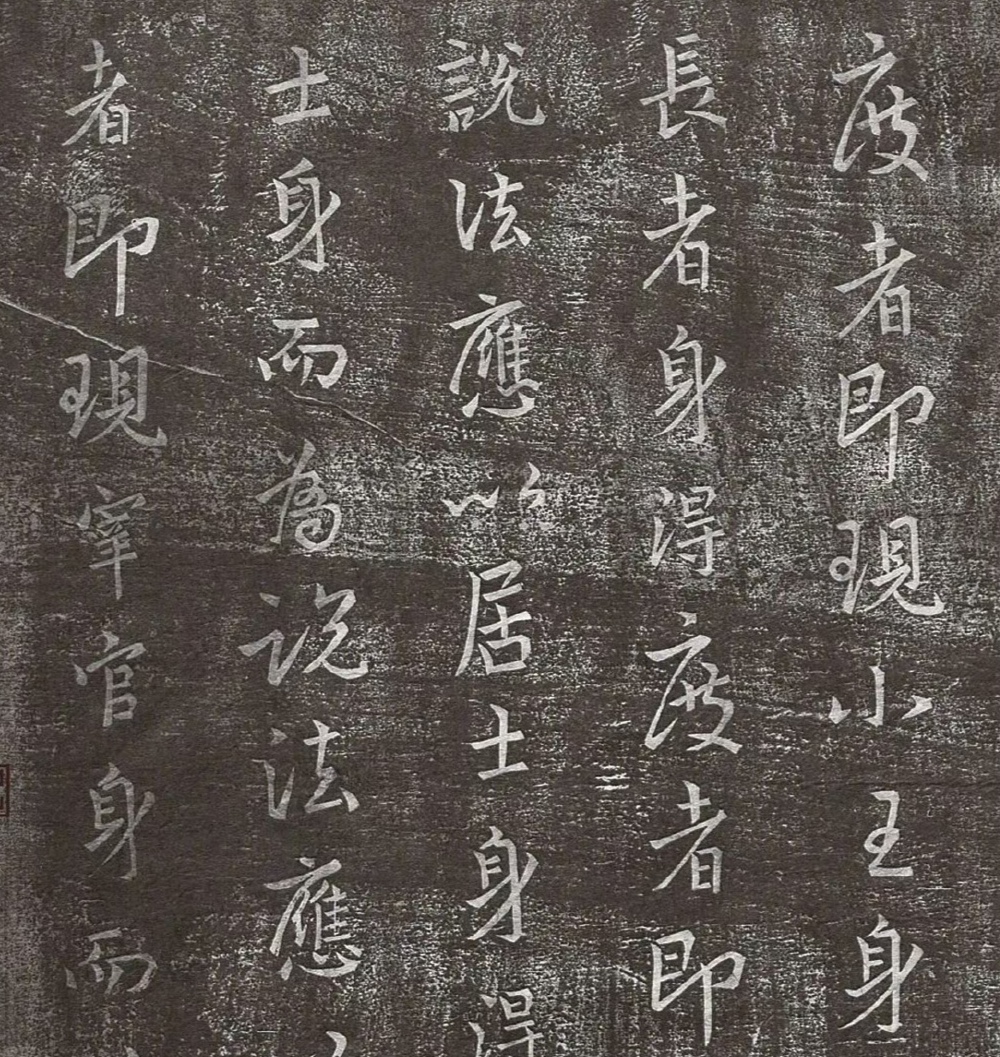 度者即現小王身
長者身得度者即
說法應以居士身得
士身而為說法應
者即現宰官身而